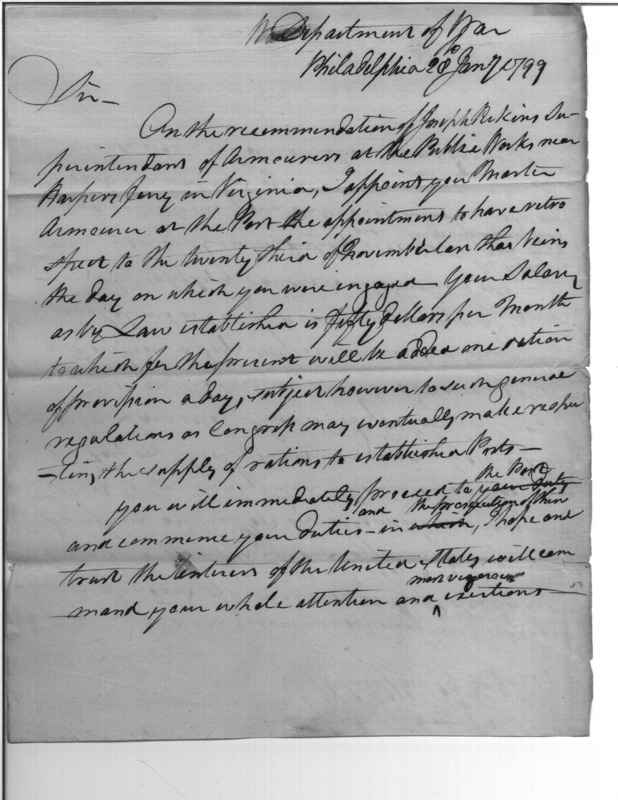 Department of War
Philadelphia 28th Jany 1799
Sir—
On the recommendation of Joseph Perkins Su-
perintendant of Armourers at the Public Works near
Harpers Ferry in Virginia, I appoint you Master
Armourer at the Post the appointment to have retro
spect to the twenty third of November last that being
the day on which you were engaged— Your Salary
as by Law established is fifty dollars per Month
to which for the present will be added one ration
of provision a day, subject however to such general
regulations as Congress may eventually make respec
-ting the supply of rations to established Posts—
the Post
you will immediately proceed to your duty
and the prosecution of them
and commence your duties— in which, I hope and
trust the interest of the United States will com
most vigorous
mand your whole attention and exertions—